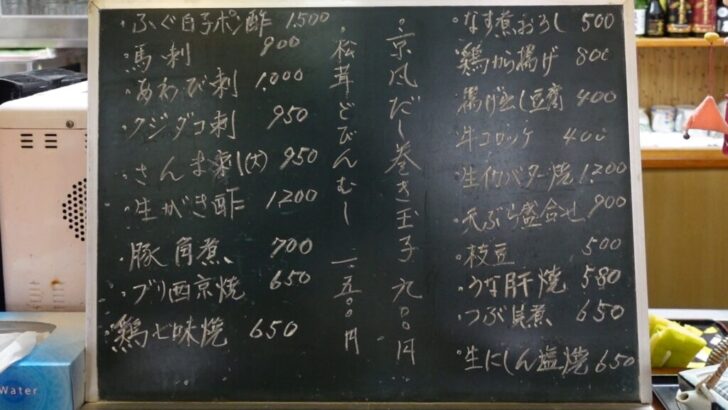 ・ふぐ白子ポン酢 1.500
・馬刺 900
・あわび刺 1.000
・クジダコ刺 950
・さんま刺(大) 950
・生がき酢 1200
・豚角煮 700
・ブリ西京焼 650
・鶏七味焼 650
・松茸どびんむし 一五〇〇円
・京風だし巻き玉子 九〇〇円
・なす煮おろし 500
鶏から揚げ 800
揚げ出し豆腐 400
・牛コロッケ 400
・天ぷら盛合せ 900
・枝豆 500
・うな肝焼 580
・つぶ貝煮 650
・生にしん塩焼 650
Water